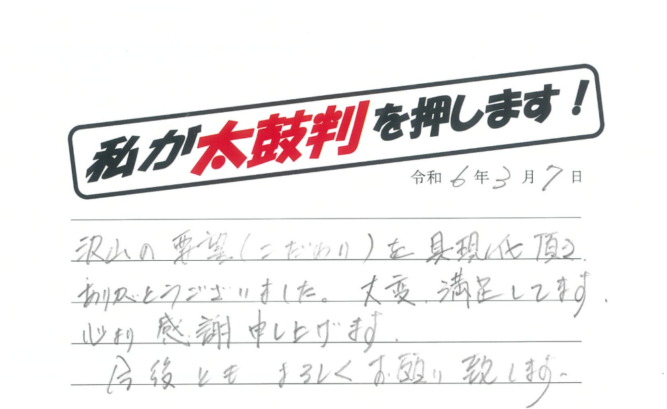 私が太鼓判を押します！
令和 6 年 3 月 7 日
沢山の要望(こだわり)を具現化頂き
ありがとうございました。大変、満足してます。
心より感謝申し上げます。
今後ともよろしくお願い致します。